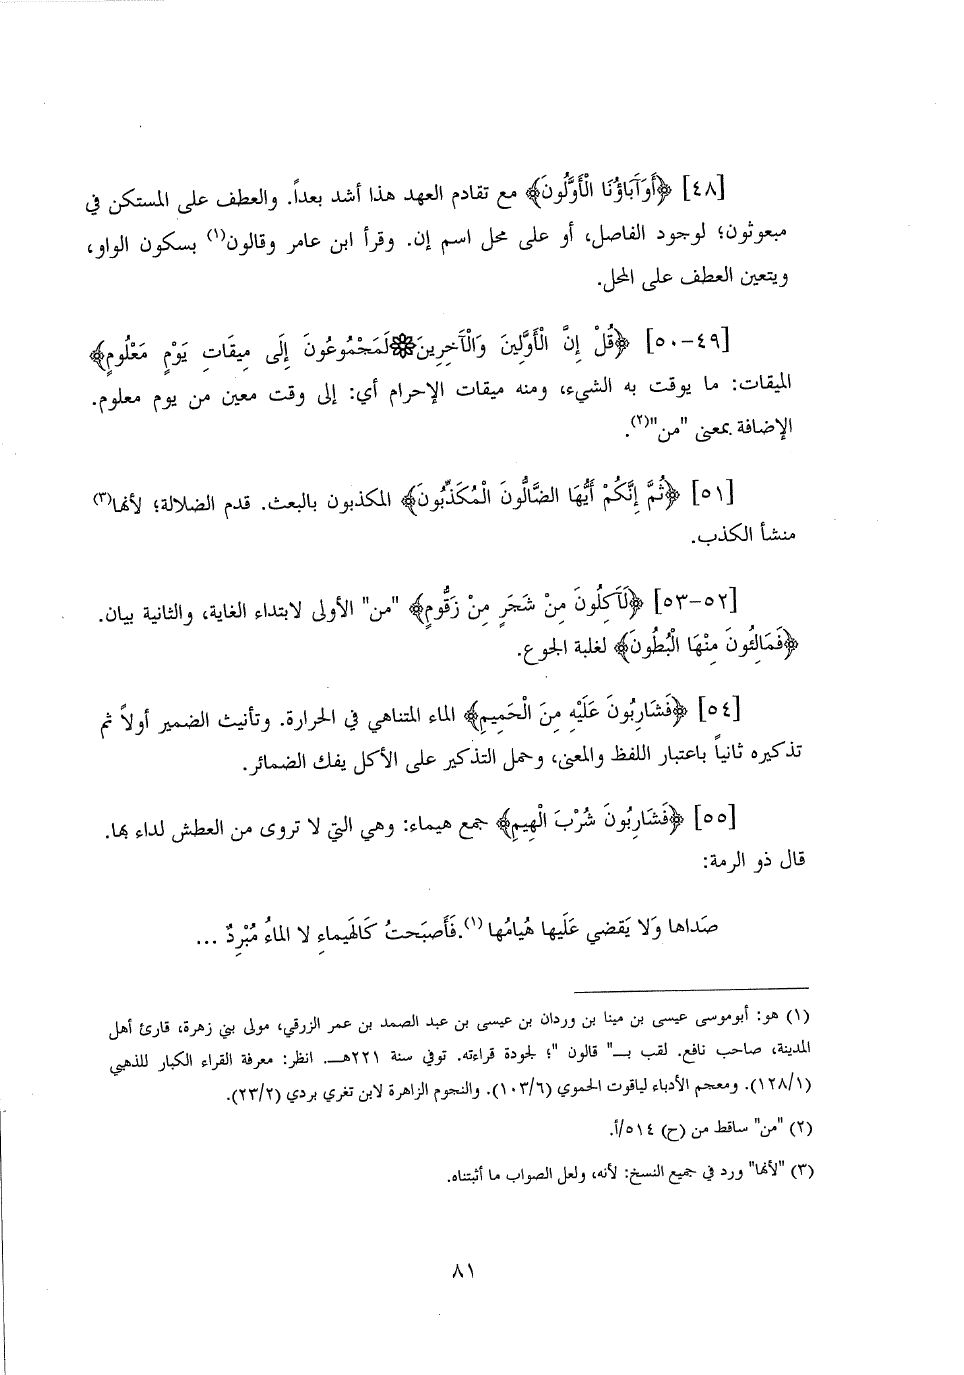 [٤٨] ﴿أَوَآبَاؤُنَا الْأَوَّلُونَ﴾ مع تقادم العهد هذا أشد بعداً. والعطف على المستكن في
مبعوثون؛ لوجود الفاصل، أو على محل اسم إن. وقرأ ابن عامر وقالون(١) بسكون الواو،
ويتعين العطف على المحل.
[٤٩-٥٠] ﴿قُلْ إِنَّ الْأَوَّلِينَ وَالْآخِرِينَ۞لَمَجْمُوعُونَ إِلَى مِيقَاتِ يَوْمٍ مَعْلُومٍ﴾
الميقات: ما يوقت به الشيء، ومنه ميقات الإحرام أي: إلى وقت معين من يوم معلوم.
الإضافة بمعنى "من"(٢).
[٥١] ﴿ثُمَّ إِنَّكُمْ أَيُّهَا الضَّالُّونَ الْمُكَذِّبُونَ﴾ المكذبون بالبعث. قدم الضلالة؛ لأنها(٣)
منشأ الكذب.
[٥٢-٥٣] ﴿لَآكِلُونَ مِنْ شَجَرٍ مِنْ زَقُّومٍ﴾ "من" الأولى لابتداء الغاية، والثانية بيان.
﴿فَمَالِئُونَ مِنْهَا الْبُطُونَ﴾ لغلبة الجوع.
[٥٤] ﴿فَشَارِبُونَ عَلَيْهِ مِنَ الْحَمِيمِ﴾ الماء المتناهي في الحرارة. وتأنيث الضمير أولاً ثم
تذكيره ثانياً باعتبار اللفظ والمعنى، وحمل التذكير على الأكل يفك الضمائر.
[٥٥] ﴿فَشَارِبُونَ شُرْبَ الْهِيمِ﴾ جمع هيماء: وهي التي لا تروى من العطش لداء بها.
قال ذو الرمة:
صَداها وَلا يَقضي عَلَيها هُيامُها (١).فَأَصبَحتُ كَالهَيماءِ لا الماءُ مُبْرِدٌ ...
(١) هو: أبوموسى عيسى بن مينا بن وردان بن عيسى بن عبد الصمد بن عمر الزرقي، مولى بني زهرة، قارئ أهل
المدينة، صاحب نافع. لقب بــ" قالون "؛ لجودة قراءته. توفي سنة ٢٢١هــ. انظر: معرفة القراء الكبار للذهبي
(١٢٨/١). ومعجم الأدباء لياقوت الحموي (١٠٣/٦). والنجوم الزاهرة لابن تغري بردي (٢٣/٢).
(٢) "من" ساقط من (ح) ٥١٤/أ.
(٣) "لأنها" ورد في جميع النسخ: لأنه، ولعل الصواب ما أثبتناه.
٨١